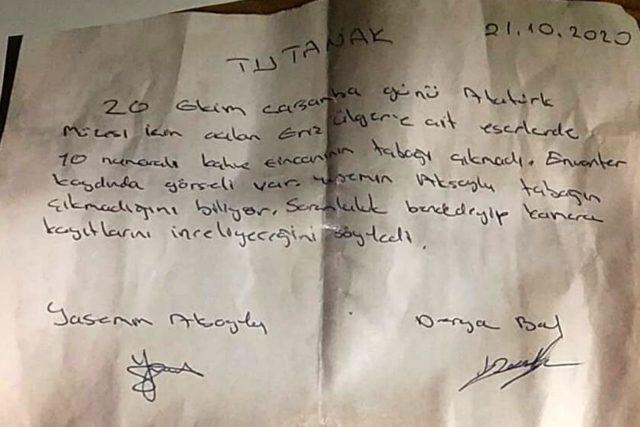 21.10.2020
TUTANAK
20 Ekim Çarşamba günü Atatürk
Müzesi için açılan Eriz Ülgen'e ait eserlerde
10 numaralı kahve fincanının tabağı çıkmadı. Envanter
kaydında görseli var. Yasemin Aksoylu tabağın
çıkmadığını biliyor. Sorumluluk bende deyip kamera
kayıtlarını inceliyeceğini söyledi.
Yasemin Aksoylu Derya Bal